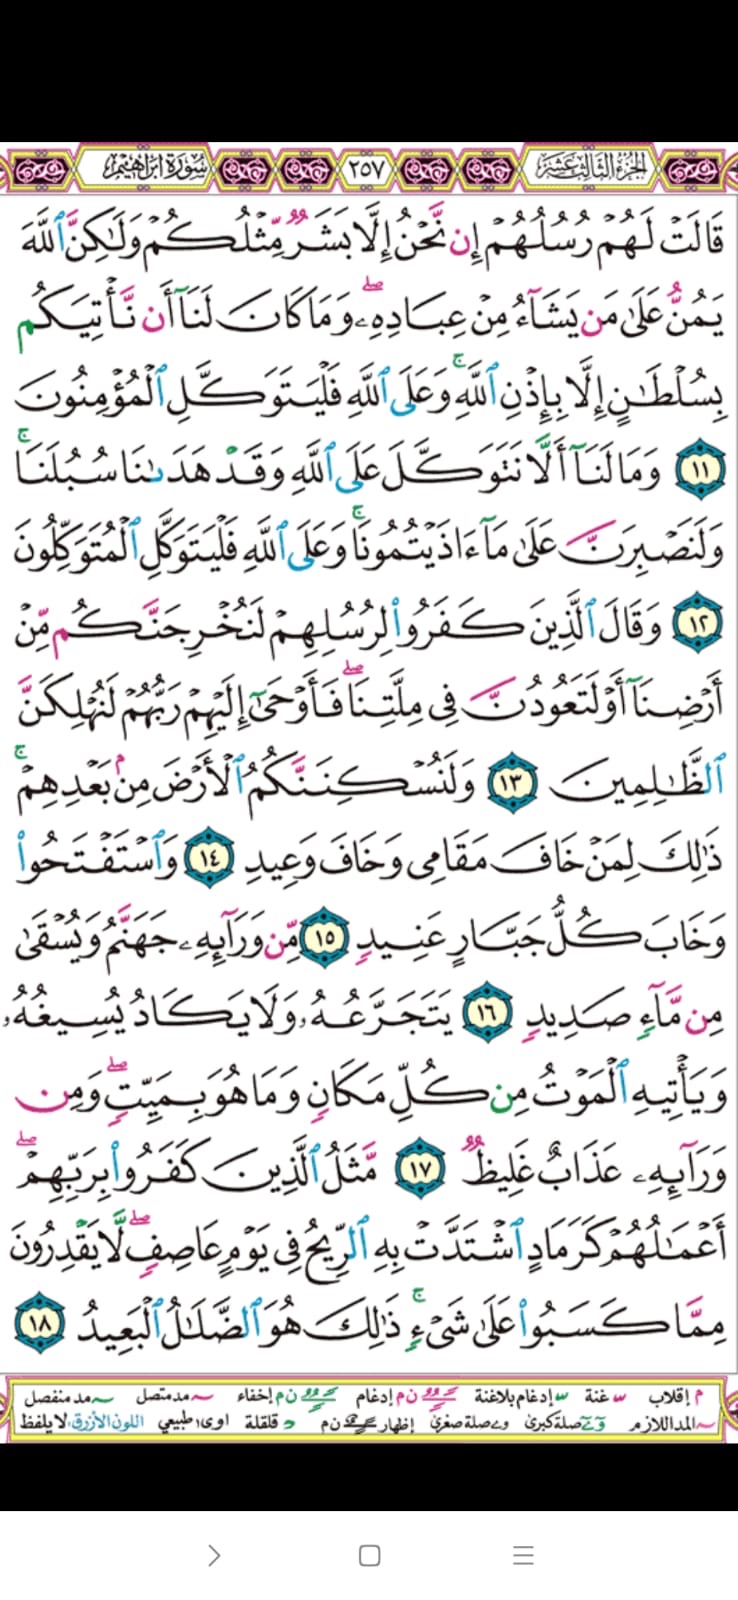 الجزء الثالث عشر ٢٥٧ سورة إبراهيم
قَالَتْ لَهُمْ رُسُلُهُمْ إِن نَّحْنُ إِلَّا بَشَرٌ مِّثْلُكُمْ وَلَٰكِنَّ ٱللَّهَ
يَمُنُّ عَلَىٰ مَن يَشَآءُ مِنْ عِبَادِهِۦ ۖ وَمَا كَانَ لَنَآ أَن نَّأْتِيَكُم
بِسُلْطَٰنٍ إِلَّا بِإِذْنِ ٱللَّهِ ۚ وَعَلَى ٱللَّهِ فَلْيَتَوَكَّلِ ٱلْمُؤْمِنُونَ
١١ وَمَا لَنَآ أَلَّا نَتَوَكَّلَ عَلَى ٱللَّهِ وَقَدْ هَدَىٰنَا سُبُلَنَا ۚ
وَلَنَصْبِرَنَّ عَلَىٰ مَآ ءَاذَيْتُمُونَا ۚ وَعَلَى ٱللَّهِ فَلْيَتَوَكَّلِ ٱلْمُتَوَكِّلُونَ
١٢ وَقَالَ ٱلَّذِينَ كَفَرُوا۟ لِرُسُلِهِمْ لَنُخْرِجَنَّكُم مِّنْ
أَرْضِنَآ أَوْ لَتَعُودُنَّ فِى مِلَّتِنَا ۖ فَأَوْحَىٰٓ إِلَيْهِمْ رَبُّهُمْ لَنُهْلِكَنَّ
ٱلظَّٰلِمِينَ ١٣ وَلَنُسْكِنَنَّكُمُ ٱلْأَرْضَ مِنۢ بَعْدِهِمْ ۚ
ذَٰلِكَ لِمَنْ خَافَ مَقَامِى وَخَافَ وَعِيدِ ١٤ وَٱسْتَفْتَحُوا۟
وَخَابَ كُلُّ جَبَّارٍ عَنِيدٍ ١٥ مِّن وَرَآئِهِۦ جَهَنَّمُ وَيُسْقَىٰ
مِن مَّآءٍ صَدِيدٍ ١٦ يَتَجَرَّعُهُۥ وَلَا يَكَادُ يُسِيغُهُۥ
وَيَأْتِيهِ ٱلْمَوْتُ مِن كُلِّ مَكَانٍ وَمَا هُوَ بِمَيِّتٍ ۖ وَمِن
وَرَآئِهِۦ عَذَابٌ غَلِيظٌ ١٧ مَّثَلُ ٱلَّذِينَ كَفَرُوا۟ بِرَبِّهِمْ ۖ
أَعْمَٰلُهُمْ كَرَمَادٍ ٱشْتَدَّتْ بِهِ ٱلرِّيحُ فِى يَوْمٍ عَاصِفٍ ۖ لَّا يَقْدِرُونَ
مِمَّا كَسَبُوا۟ عَلَىٰ شَىْءٍ ۚ ذَٰلِكَ هُوَ ٱلضَّلَٰلُ ٱلْبَعِيدُ ١٨
م إقلاب غنة إدغام بلاغنة ن م إدغام ن م إخفاء مد متصل مد منفصل
المد اللازم صلة كبرى صلة صغرى إظهار ن م قلقلة اوى طبيعي اللون الأزرق لا يلفظ